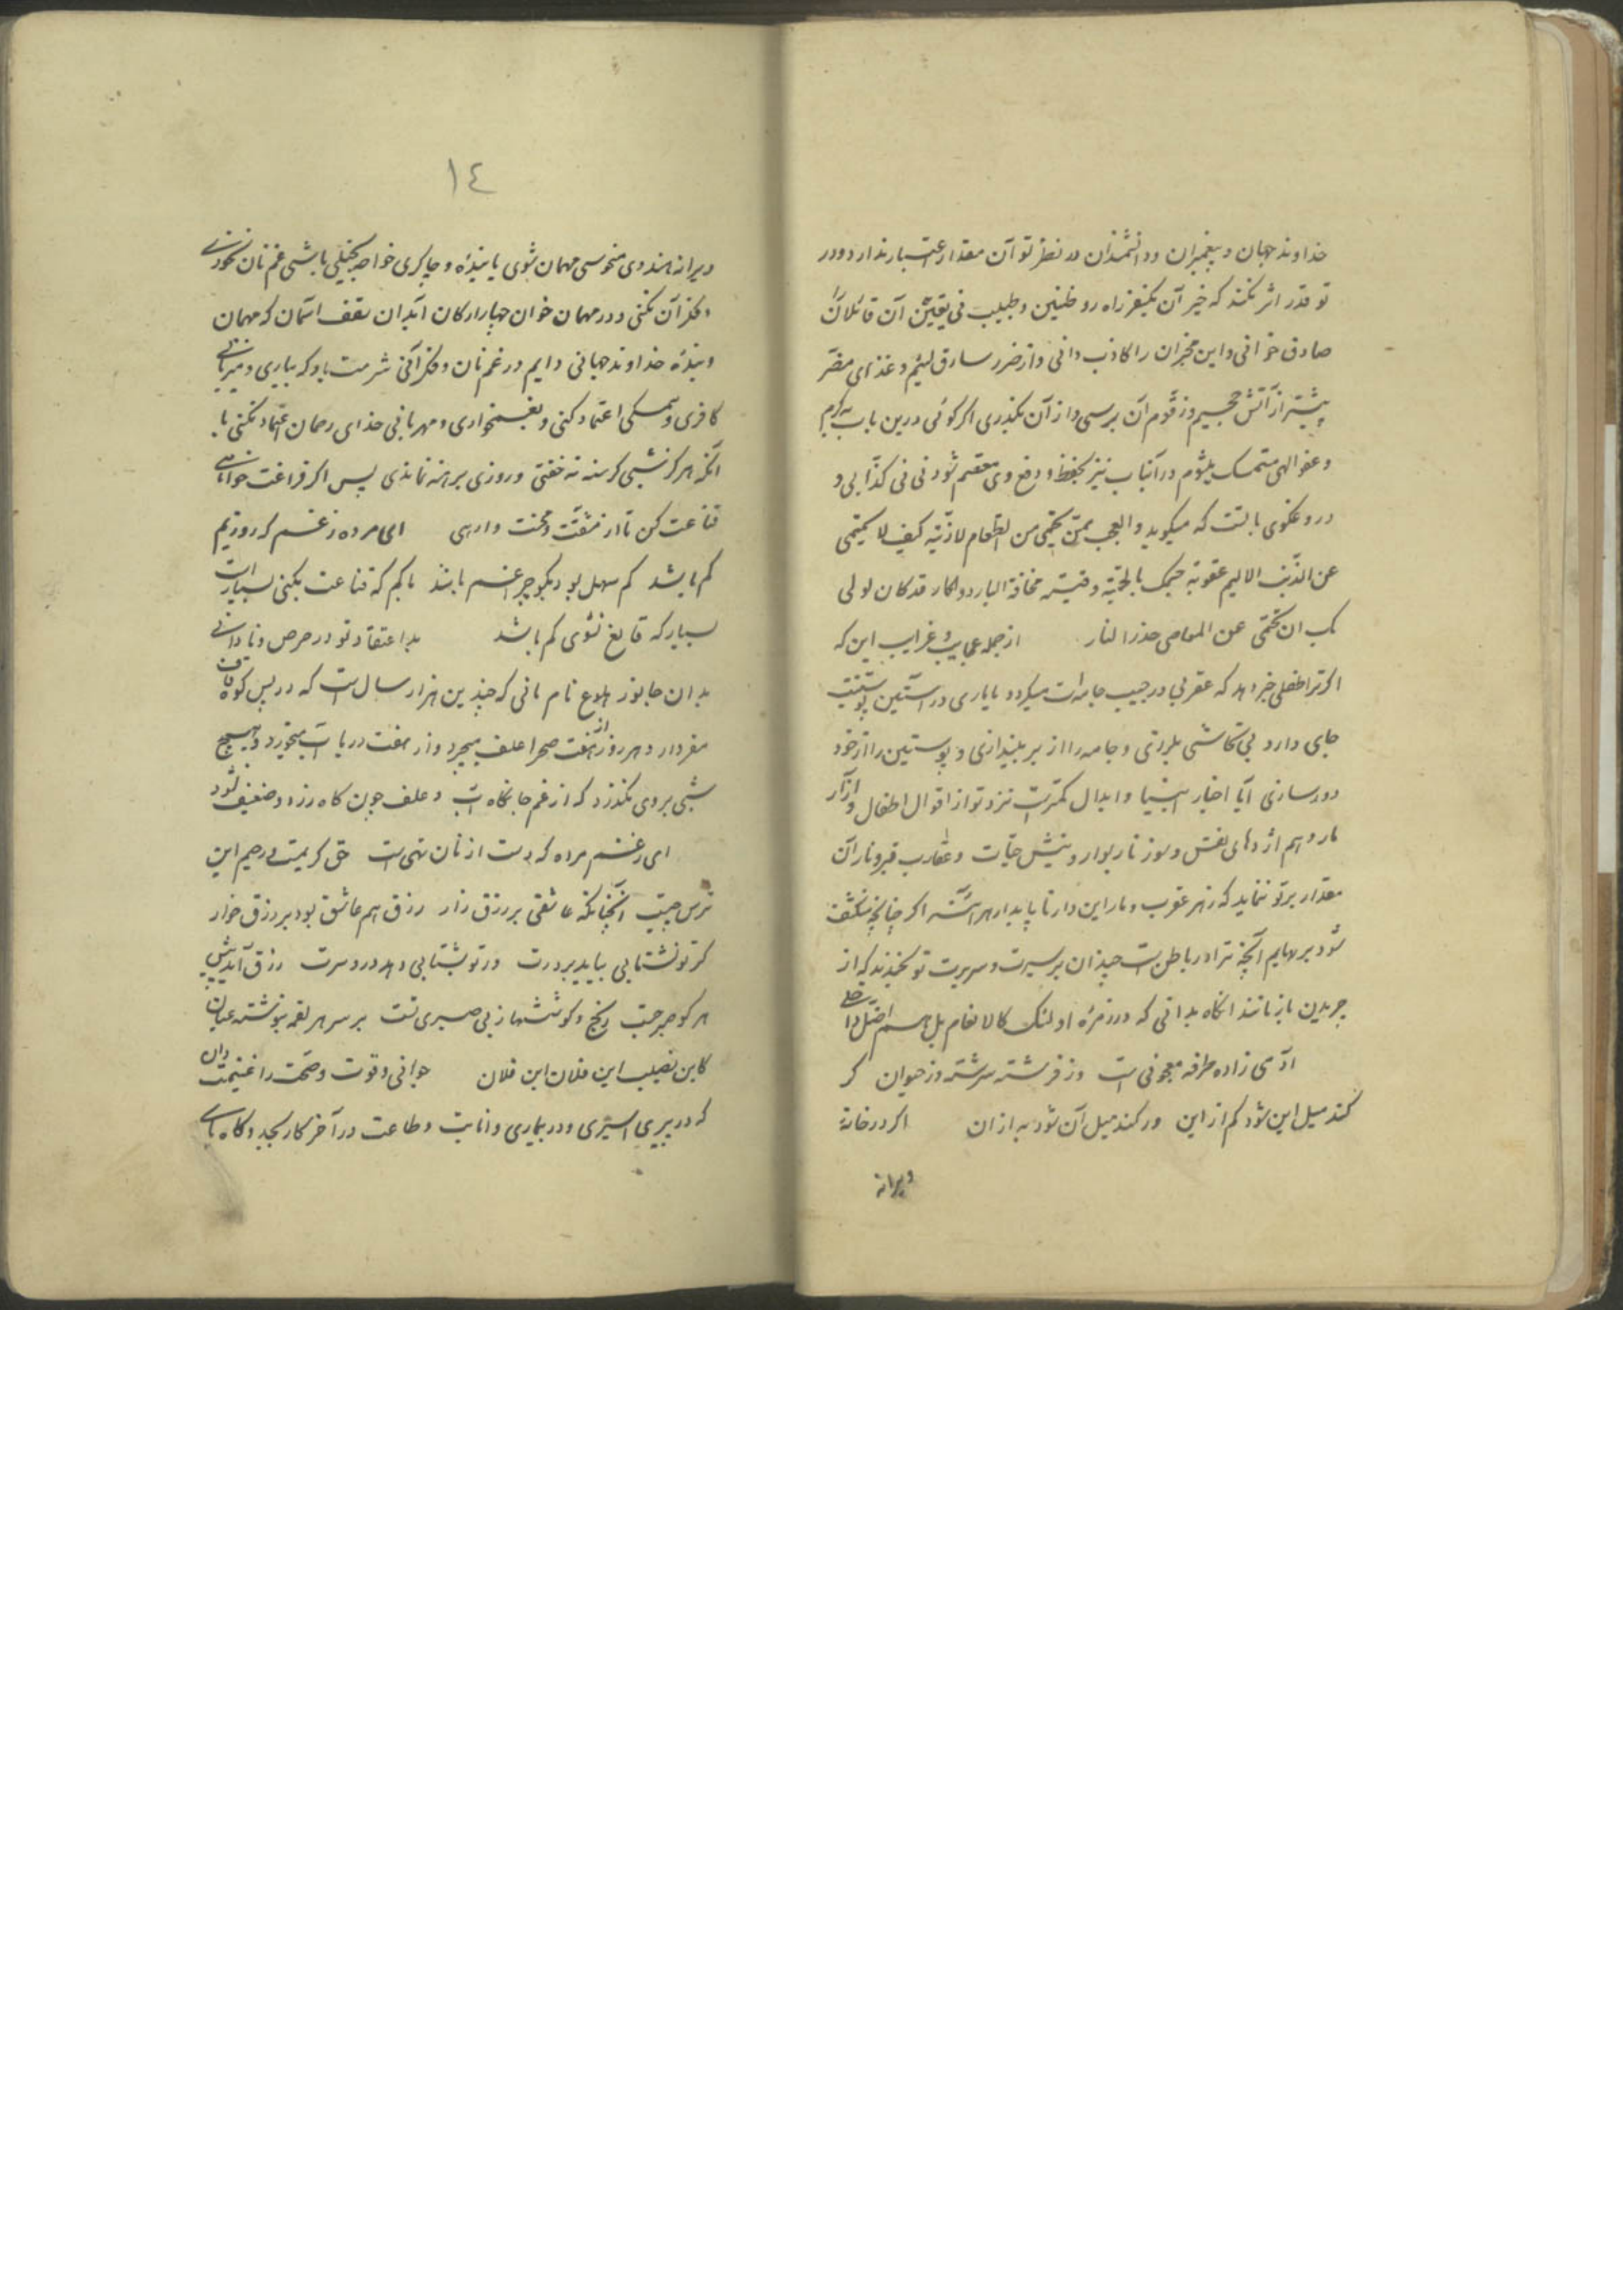 خداوند جهان و پیغمبران و دانشمندان در نظر تو آن مقدار اعتبار ندارد و در
تو قدر اثر نکند که خبر آن یکنفر راه رو ظنین و طبیب فی یقین آن قائلان
صادق خوانی و این مخبران را کاذب دانی و از ضرر سارق لئیم و غذای مضر
پیشتر از آتش جحیم و زقوم آن برسی و از آن بگذری اگر گوئی درین باب به کرم
و عفو الهی متمسک میشوم در آنباب نیز بحفظ و دفع وی معتصم شو نی نی کذابی و
دروغگوی بالتست که میگوید و العجب ممن یحتمی من الطعام لاذیته کیف لا یحتمی
عن الذنب الالیم عقوبته جسمک بالحمیة وقیته مخافة البارد و الحار قد کان اولی
بک ان تحتمی عن المعاصی حذر النار از جمله عجایب و غرایب این که
اگر ترا طفلی خبر دهد که عقربی در جیب جامه‌ات میگردد یا ماری در آستین پوستینت
جای دارد بی تحاشی بلرزی و جامه را از بر بیندازی و پوستین را از خود
دور سازی آیا اخبار انبیا و ابدال کمتر است نزد تو از اقوال اطفال و آزار
مار و سم اژدهای نفس و سوز نار بوار و نیش حیات و عقارب قبر و نار آن
مقدار بر تو ننماید که زهر عقرب و مار این دار ناپایدار هر آینه اگر چنانچه منکشف
شود بر بهایم آنچه ترا در باطن است چندان بر سیرت و سریرت تو بخندند که از
چریدن باز مانند انگاه بدانی که در زمره اولئک کالانعام بل هم اضل داخلی
آدمی زاده طرفه معجونی است وز فرشته سرشته وز حیوان گر
کند میل این شود کم از این ور کند میل آن شود به از ان اگر در خانه
ویرانه
١٤
ویرانه هندوی منحوسی مهمان شوی یا بنده و چاکری خواجه بخیلی باشی غم نان نخوری
و فکر آن نکنی و در مهمان خوان چهار ارکان آبدان سقف آسمان که مهمان
و بنده خداوند جهانی دایم در غم نان و فکر آنی شرمت باد که بیاری و میزبانی
کافری و ممسکی اعتماد کنی و بغمخواری و مهربانی خدای رحمان اعتماد نکنی با
آنکه هرگز شبی گرسنه نخفتی و روزی برهنه نماندی پس اگر فراغت خواهی
قناعت کن تا از مشقت و محنت وارهی ای مرده ز غم که روزیم
کم باشد کم سهل بود بگو چه غم باشد با کم که قناعت بکنی بسیار است
بسیار که قانع نشوی کم باشد بد اعتقاد تو در حرص و نادانی
بدان جانور هلوع نام مانی که چندین هزار سال است که در پس کوه قاف
مقر دارد هر روز از هفت صحرا علف میچرد و از هفت دریا آب میخورد و هیچ
شبی بر وی نگذرد که از غم جانکاه آب و علف چون کاه زرد و ضعیف نشود
ای ز غم مرده که دست از نان تهی است حق کریمست و رحیم این
ترس چیست آنچنانکه عاشقی بر رزق زار رزق هم عاشق بود بر رزق خوار
گر تو نشتابی بیاید بر درت ور تو بشتابی دهد دردسرت رزق آید پیش
هر کو صبر جست رنج و کوششها ز بی صبری تست بر سر هر لقمه بنوشته عیان
کاین نصیب این فلان ابن فلان جوانی و قوت و صحت را غنیمت دان
که در پیری اسیری و در بیماری و انابت و طاعت در آخر کار بجد و گاه